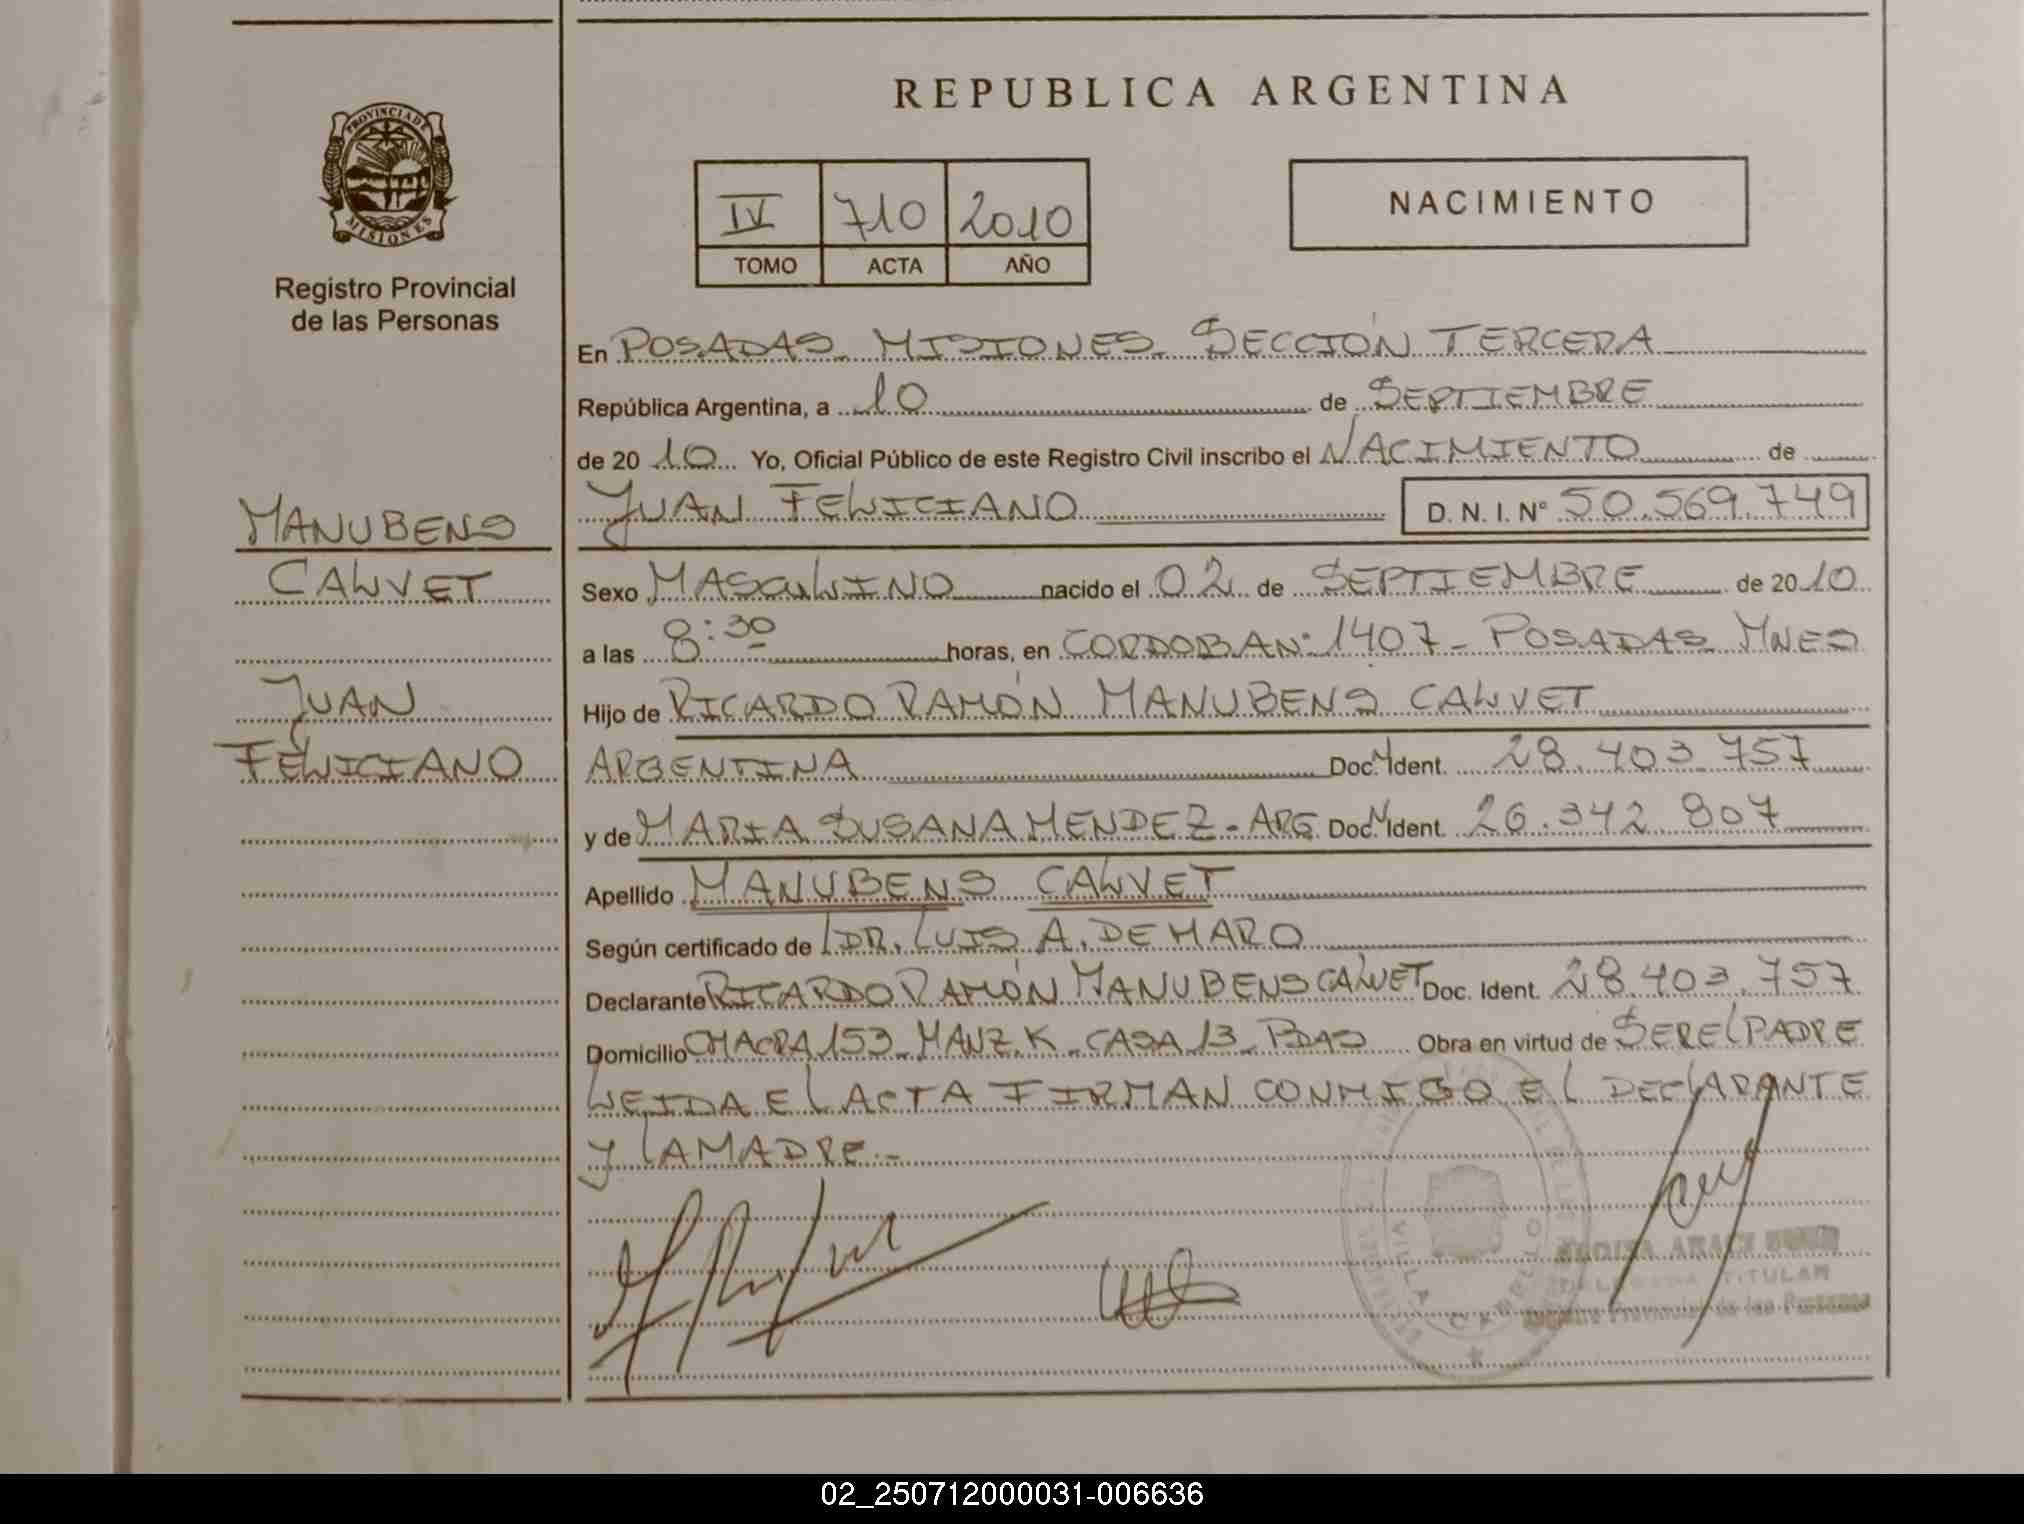 REPUBLICA ARGENTINA
PROVINCIA DE
MISIONES
Registro Provincial
de las Personas
IV 710 2010
TOMO ACTA AÑO
NACIMIENTO
MANUBENS
CALVET
JUAN
FELICIANO
En POSADAS MISIONES SECCIÓN TERCERA
República Argentina, a 10 de SEPTIEMBRE
de 2010 Yo, Oficial Público de este Registro Civil inscribo el NACIMIENTO de
JUAN FELICIANO D. N. I. N° 50.569.749
Sexo MASCULINO nacido el 02 de SEPTIEMBRE de 2010
a las 8:30 horas, en CORDOBA N° 1407 - POSADAS MNES
Hijo de RICARDO RAMÓN MANUBENS CALVET
ARGENTINA Doc. Ident. 28.403.757
y de MARIA SUSANA MENDEZ - ARG. Doc. Ident. 26.342.807
Apellido MANUBENS CALVET
Según certificado de DR. LUIS A. DE MARO
Declarante RICARDO RAMÓN MANUBENS CALVET Doc. Ident. 28.403.757
Domicilio CHACRA 153 MANZ. K CASA 13 PDAS Obra en virtud de SER EL PADRE
LEIDA EL ACTA FIRMAN CONMIGO EL DECLARANTE
Y LA MADRE.-
TITULAR
Registro Provincial de las Personas
02_250712000031-006636